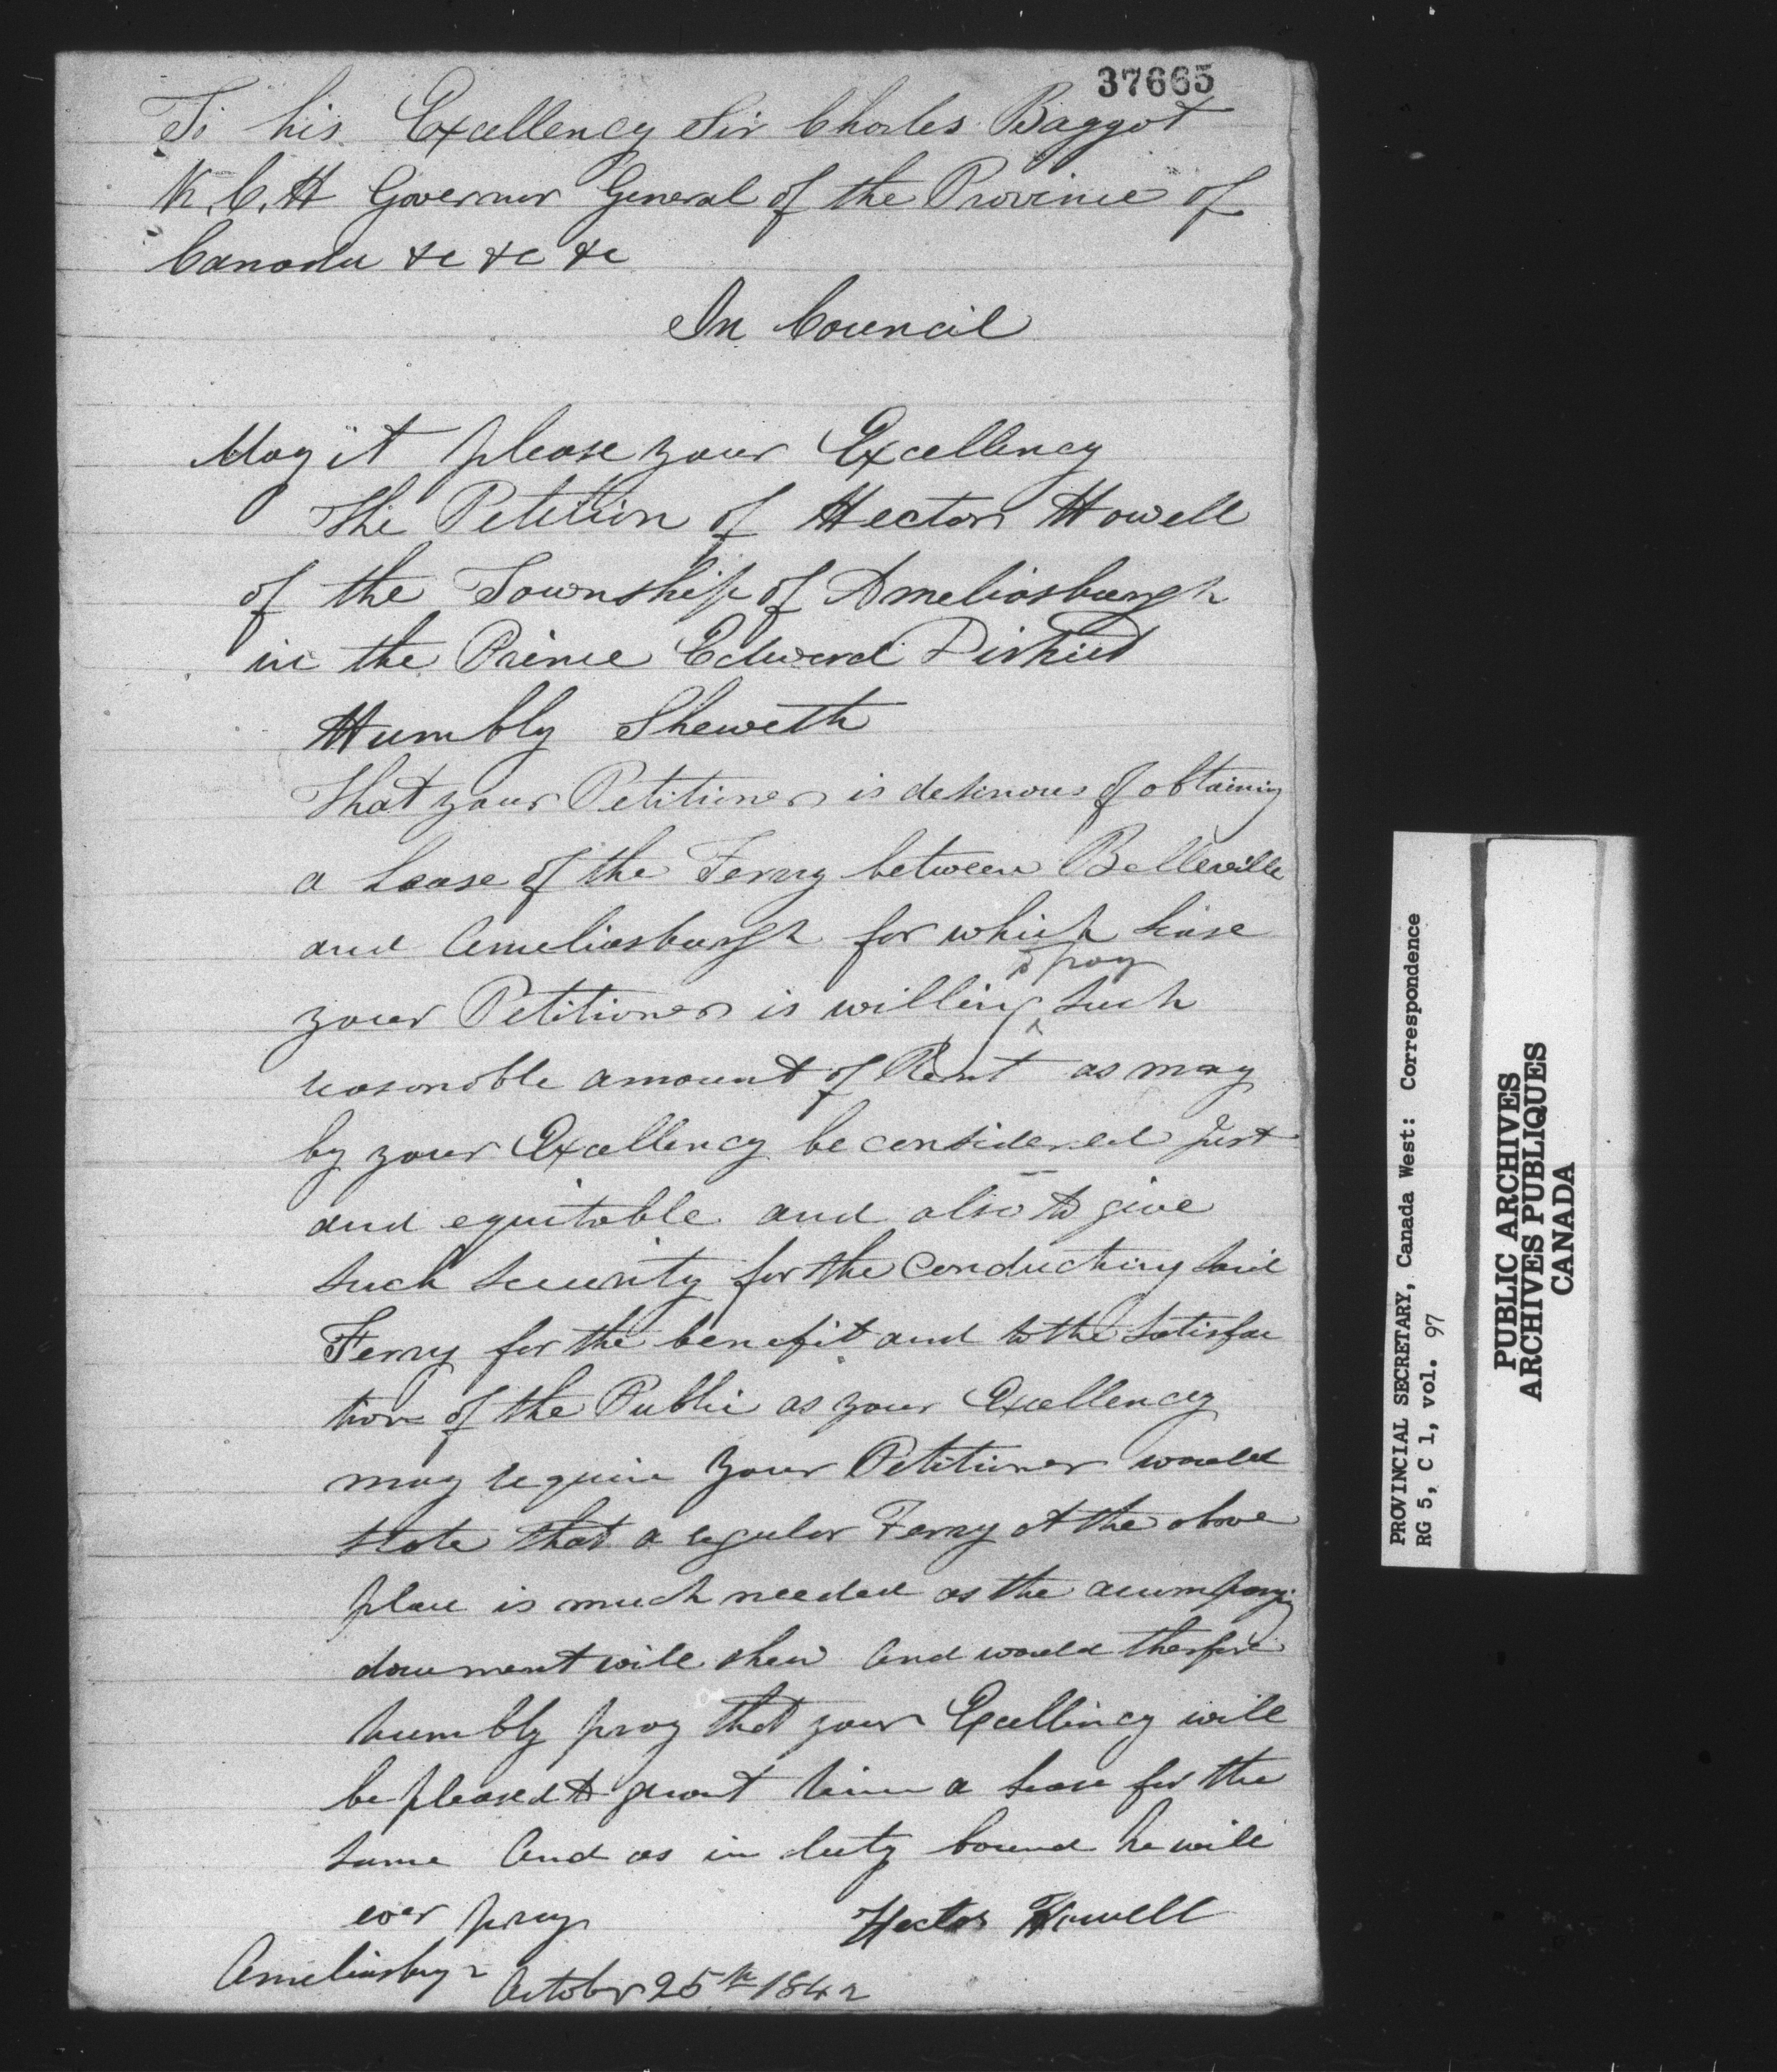 37665
To his Excellency Sir Charles Baggot
K. C. H Governor General of the Province of
Canada &c &c &c
In Council
May it please your Excellency
The Petition of Hector Howell
of the Township of Ameliasburgh
in the Prince Edward District
Humbly Sheweth
That your Petitioner is desirous of obtaining
a Lease of the Ferry between Belleville
and Ameliasburgh for which Lease
your Petitioner is willing to pay such
reasonable amount of Rent as may
by your Excellency be considered Just
and equitable and also to give
such security for the conducting said
Ferry for the benefit and to the satisfac
tion of the Public as your Excellency
may require Your Petitioner would
state that a regular Ferry at the above
place is much needed as the accompanying
document will shew And would therefore
humbly pray that your Excellency will
be pleased to grant him a Lease for the
same And as in duty bound he will
ever pray
Hector Howell
Ameliasburgh
October 25th 1842
PROVINCIAL SECRETARY, Canada West: Correspondence
RG 5, C 1, vol. 97
PUBLIC ARCHIVES
ARCHIVES PUBLIQUES
CANADA